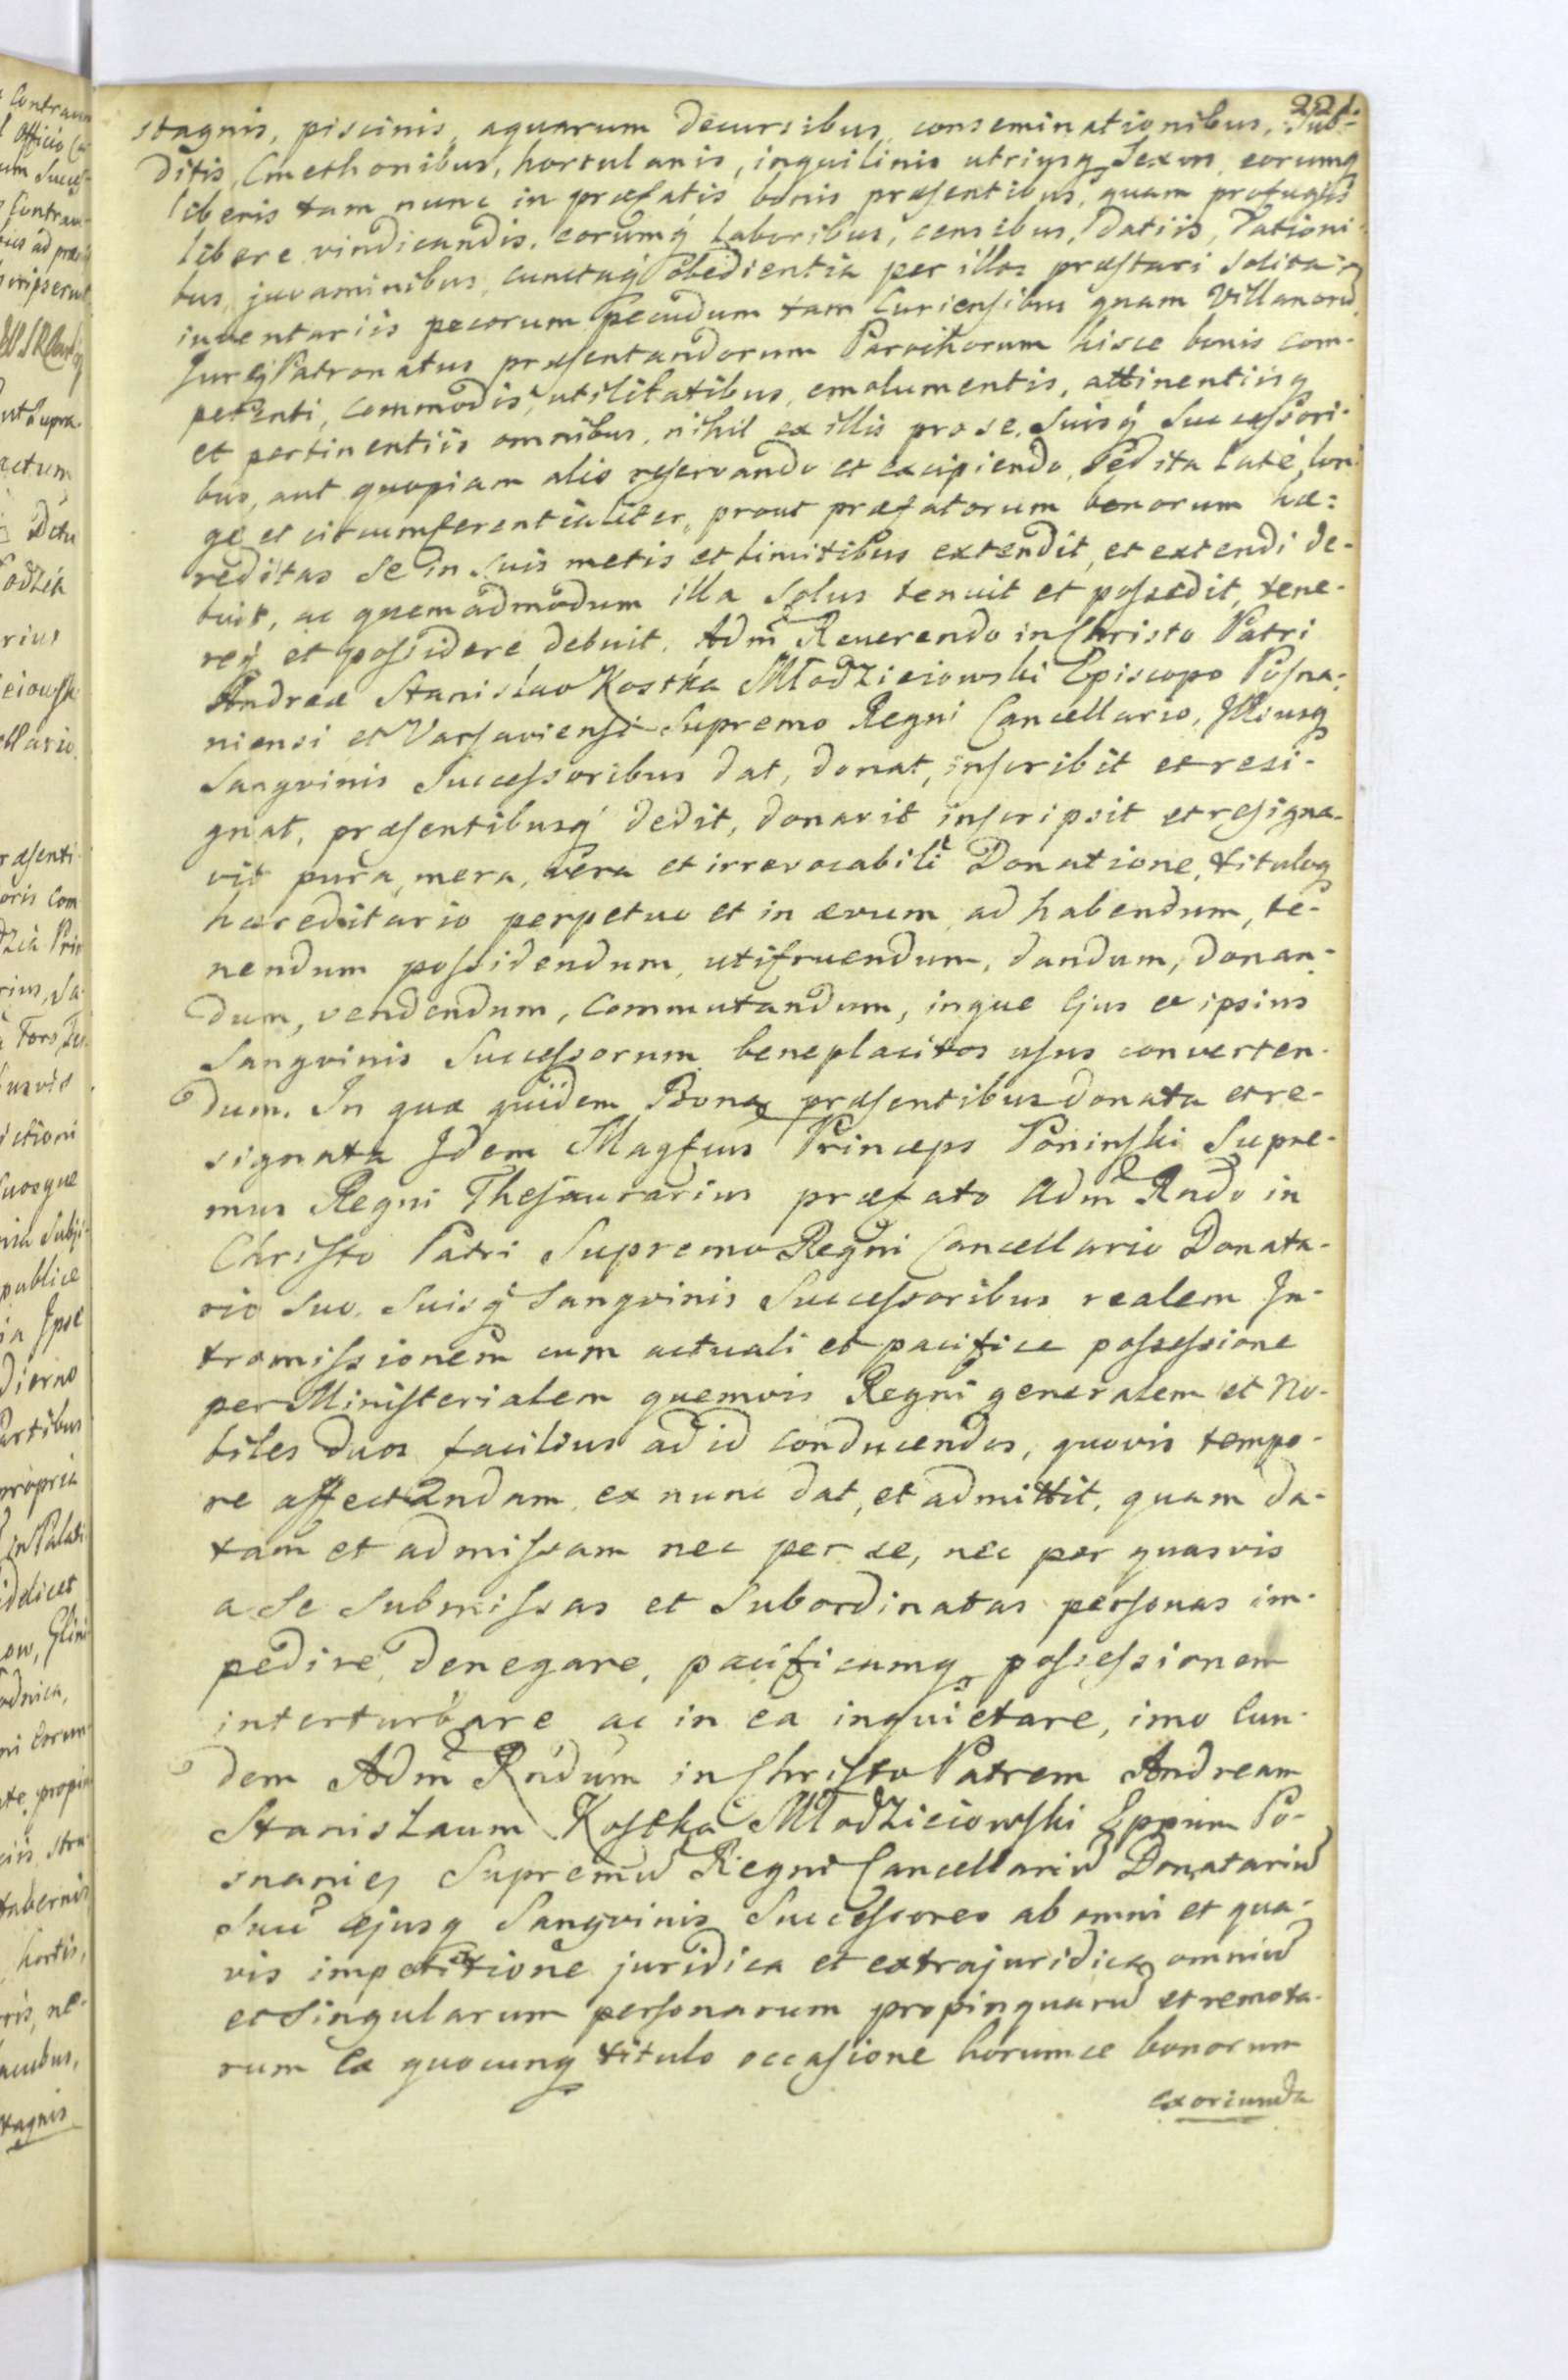 221.
stagnis, piscinis, aquarum decursibus, conseminationibus, Sub-
ditis, Cmethonibus, hortulanis, inquilinis utriusq Sexus, eorumq
liberis tam nunc in præfatis bonis præsentibus, quam profugis
libere vindicandis, eorumq laboribus, censibus, Datiis, Dationi-
bus, juvaminibus, cunctaq obedientia per illos præstari solita,
inventariis pecorum pecudum tam Curiensibus quam Villanorũ
Jureq Patronatus præsentandorum Parochorum hisce bonis com-
petenti, commodis, utilitatibus, emolumentis, attinentiisq
et pertinentiis omnibus, nihil ex illis pro se, Suisq Successori-
bus, aut quopiam alio reservando et excipiendo, Sed ita late, lon
ge et circumferentialiter, prout præfatorum bonorum hæ=
reditas Se in Suis metis et limitibus extendit, et extendi de-
buit, ac quemadmodum illa Solus tenuit et possedit, tene-
req et possidere debuit. Adm Reverendo in Christo Patri
Andreæ Stanislao Kostka Młodzieiowski Episcopo Posna-
niensi et Varsaviensi Supremo Regni Cancellario, Illiusq
Sangvinis Successoribus dat, donat, inscribit et resi-
gnat, præsentibusq dedit, donavit inscripsit et resigna-
vit pura, mera, vera et irrevocabili Donatione, tituloq
hæreditario perpetuo et in ævum, ad habendum, te-
nendum possidendum, utifruendum, dandum, donan-
dum, vendendum, commutandum, inque Ejus et ipsius
Sangvinis Successorum beneplacitos usus converten-
dum. In quæ quidem Bona præsentibus donata et re-
signata Idem Magfcus Princeps Poninski Supre-
mus Regni Thesaurarius præfato Adm Rndo in
Christo Patri Supremo Regni Cancellario Donata-
rio Suo, Suisq Sangvinis Successoribus realem In-
tromissionem cum actuali et pacifice possessione
per Ministerialem quemvis Regni generalem et No-
biles duos facilius ad id conducendos, quovis tempo-
re affectandam, ex nunc dat, et admittit, quam da-
tam et admissam nec per se, nec per quasvis
a Se Submissas et Subordinatas personas im-
pedire, denegare, pacificamq possessionem
interturbare ac in ea inquietare, imo Eun-
dem Adm Rndum in Christo Patrem Andream
Stanislaum Kostka Młodzieiowski Eppum Po-
snanieñ Supremũ Regni Cancellariũ Donatariũ
Suũ ejusq Sangvinis Successores ab omni et qua-
vis impetitione juridica et extrajuridica omniũ
et Singularum personarum propinquarũ et remota-
rum Ex quocunq titulo occasione horumce bonorum
exoriunda